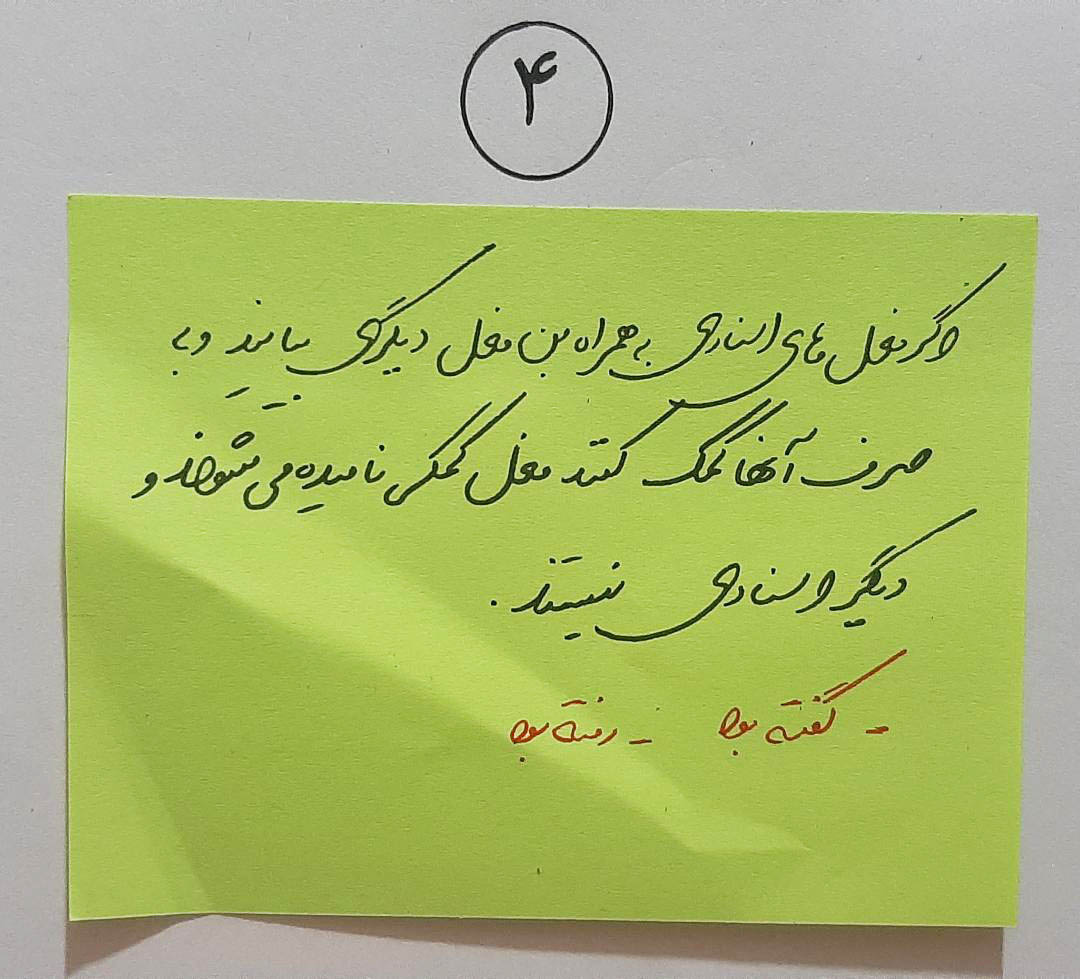 ۴
اگر فعل های اسنادی به همراه بن فعل دیگری بیایند و به
صرف آنها کمک کنند فعل کمکی نامیده می شوند و
دیگر اسنادی نیستند.
- گفته بود - رفته بود